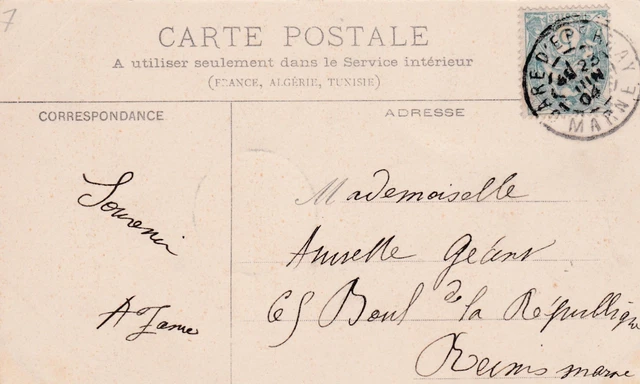 7
CARTE POSTALE
A utiliser seulement dans le Service intérieur
(FRANCE, ALGÉRIE, TUNISIE)
GARE D'EPERNAY
23
JUIN
04
MARNE
CORRESPONDANCE
ADRESSE
Souvenir
Mademoiselle
Géant
65 Boul de la République
Reims marne